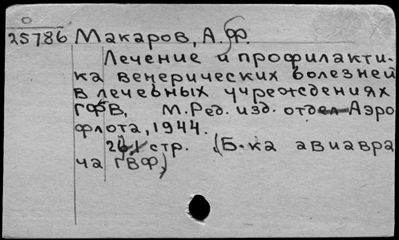 25786 Макаров, А.Ф.
Лечение и профилакти-
ка венерических болезней
в лечебных учреждениях
ГФВ. М. Ред. изд. отдел Аэро
флота, 1944.
стр. (Б-ка авиавра
ча ГВФ)